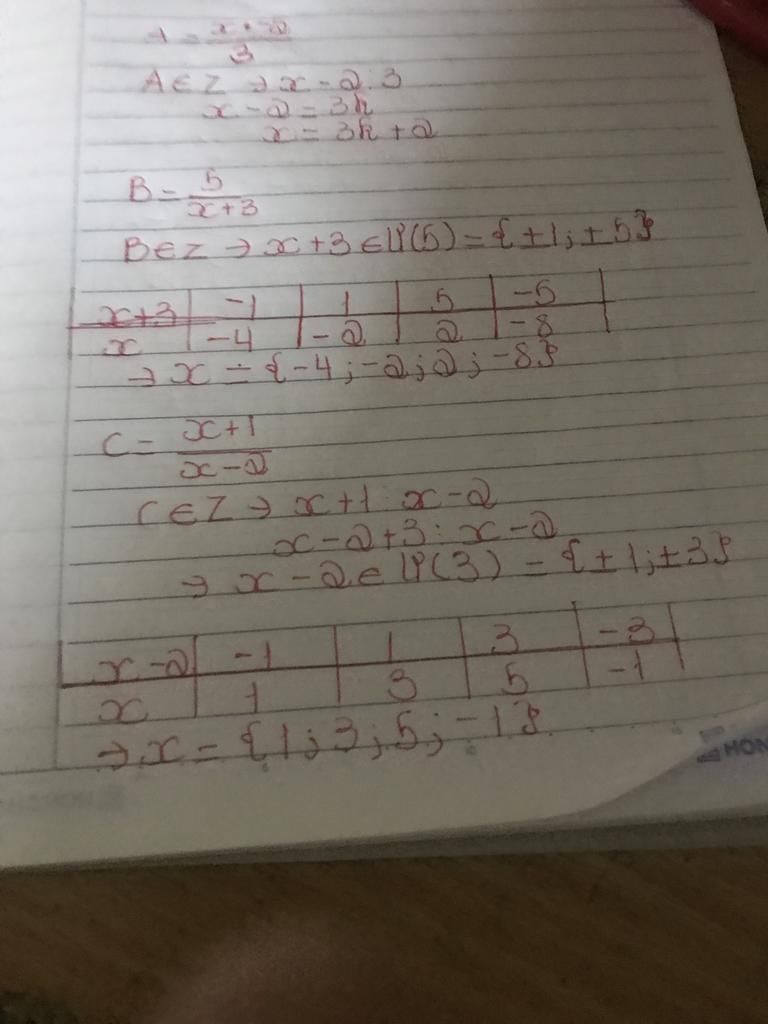 A = x - 2 / 3
A ∈ Z → x - 2 ⋮ 3
x - 2 = 3k
x = 3k + 2
B = 5 / x+3
B ∈ Z → x+3 ∈ Ư(5) = {±1; ±5}
x+3 | -1 | 1 | 5 | -5
x | -4 | -2 | 2 | -8
→ x = {-4; -2; 2; -8}
C = x+1 / x-2
C ∈ Z → x+1 ⋮ x-2
x-2+3 ⋮ x-2
→ x-2 ∈ Ư(3) = {±1; ±3}
x-2 | -1 | 1 | 3 | -3
x | 1 | 3 | 5 | -1
→ x = {1; 3; 5; -1}
HON